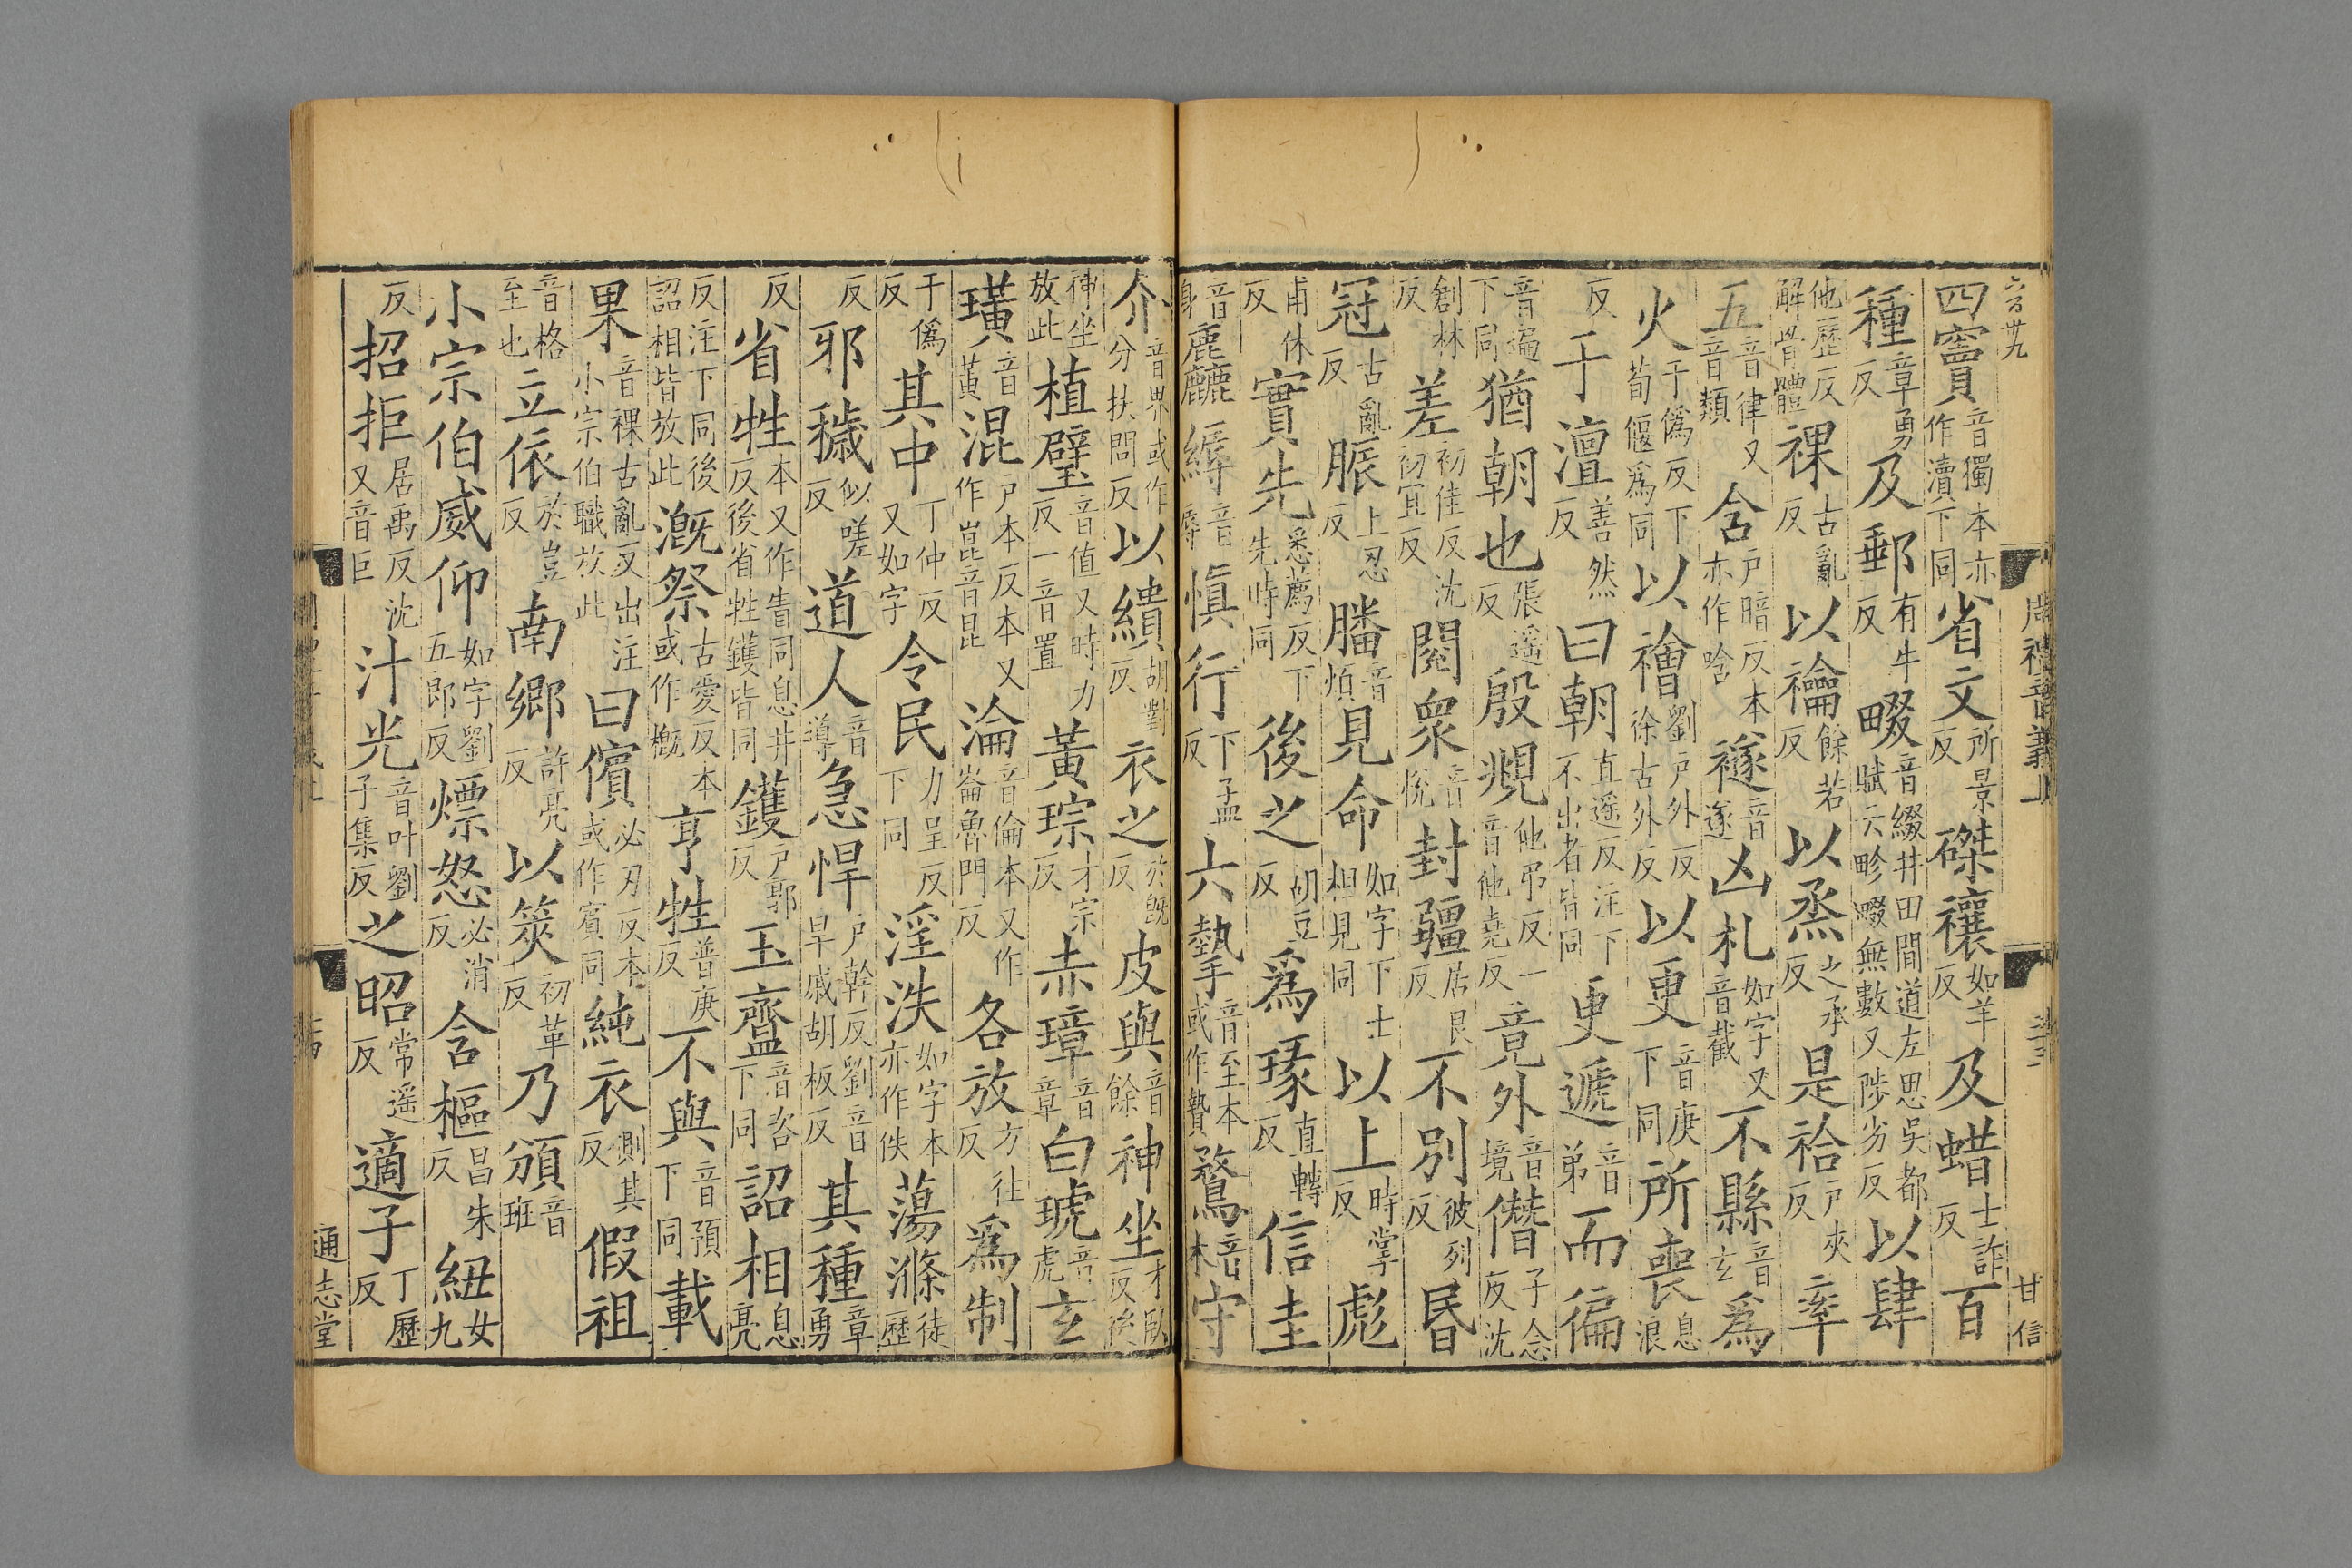 六百卅九
甘信
四竇音獨本亦作瀆下同省文所景反磔禳如羊反及蜡士詐反百
種章勇反及郵有牛反畷音綴井田間道左思吳都賦云畛畷無數又陟劣反以肆
他歷反解骨體祼古亂反以禴餘若反以烝之承反是祫戶夾反率
五音律又音類含戶暗反本亦作唅禭音遂凶札如字又音截不縣音玄爲
火于僞反下荀偃爲同以禬劉戶外反徐古外反以更音庚下同所喪息浪
反于澶善然反曰朝直遥反注下不出者皆同更遞音弟而徧
音遍下同猶朝也張遥反殷覜他弔反一音他堯反竟外音境僭子念反沈
創林反差初佳反沈初宜反閱衆音悅封疆居良反不別彼列反昬
冠古亂反脤上忍反膰音煩見命如字下士相見同以上時掌反彪
甫休反實先悉薦反下先時同後之胡豆反爲瑑直轉反信圭
音身麃縟音辱愼行下孟反六摯音至本或作贄鶩音木守
介音界或作分扶問反以繢胡對反衣之於旣反皮與音餘神坐才臥反後
神坐放此植璧音值又時力反一音置黃琮才宗反赤璋音章白琥音虎玄
璜音黃混戶本反本又作崑音昆淪音倫本又作崙魯門反各放方往反爲制
于僞反其中丁仲反又如字令民力呈反下同淫泆如字本亦作佚蕩滌徒歷
反邪穢似嗟反道人音導急悍戶幹反劉音旱戚胡板反其種章勇
反省牲本又作眚同息井反後省牲鑊皆同鑊戶郭反玉齍音咨下同詔相息亮
反注下同後詔相皆放此漑祭古愛反本或作槪亨牲普庚反不與音預下同載
果音祼古亂反出注小宗伯職放此曰儐必刃反本或作賓同純衣側其反假祖
音格至也立依於豈反南鄉許亮反以筴初革反乃頒音班
小宗伯威仰如字劉五郎反熛怒必消反含樞昌朱反紐女九
反招拒居禹反沈又音巨汁光音叶劉子集反之昭常遥反適子丁歷反
通志堂